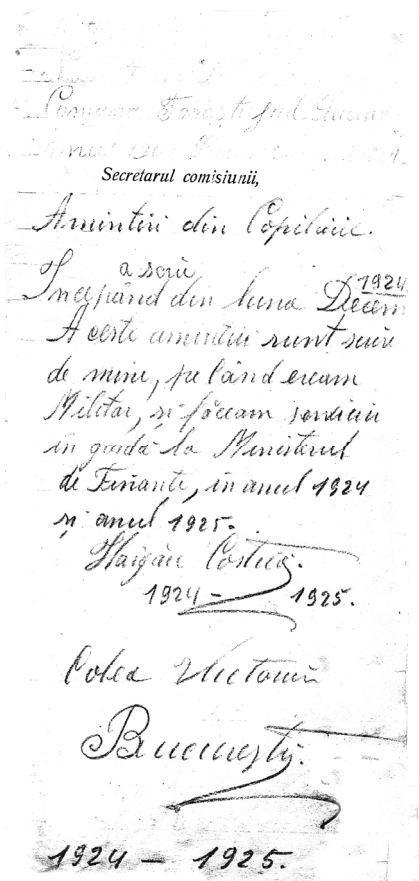 Comuna Tarești jud.
Anul
Secretarul comisiunii,
Amintiri din Copilărie.
a scrie 1924
Începând din luna Decem
Aceste amintiri sunt scrise
de mine, pe când eream
Militar, și făceam serviciu
în gardă la Ministerul
de Finanțe, în anul 1924
și anul 1925.
Costică.
1924 - 1925.
Calea Victoriei
București.
1924 - 1925.